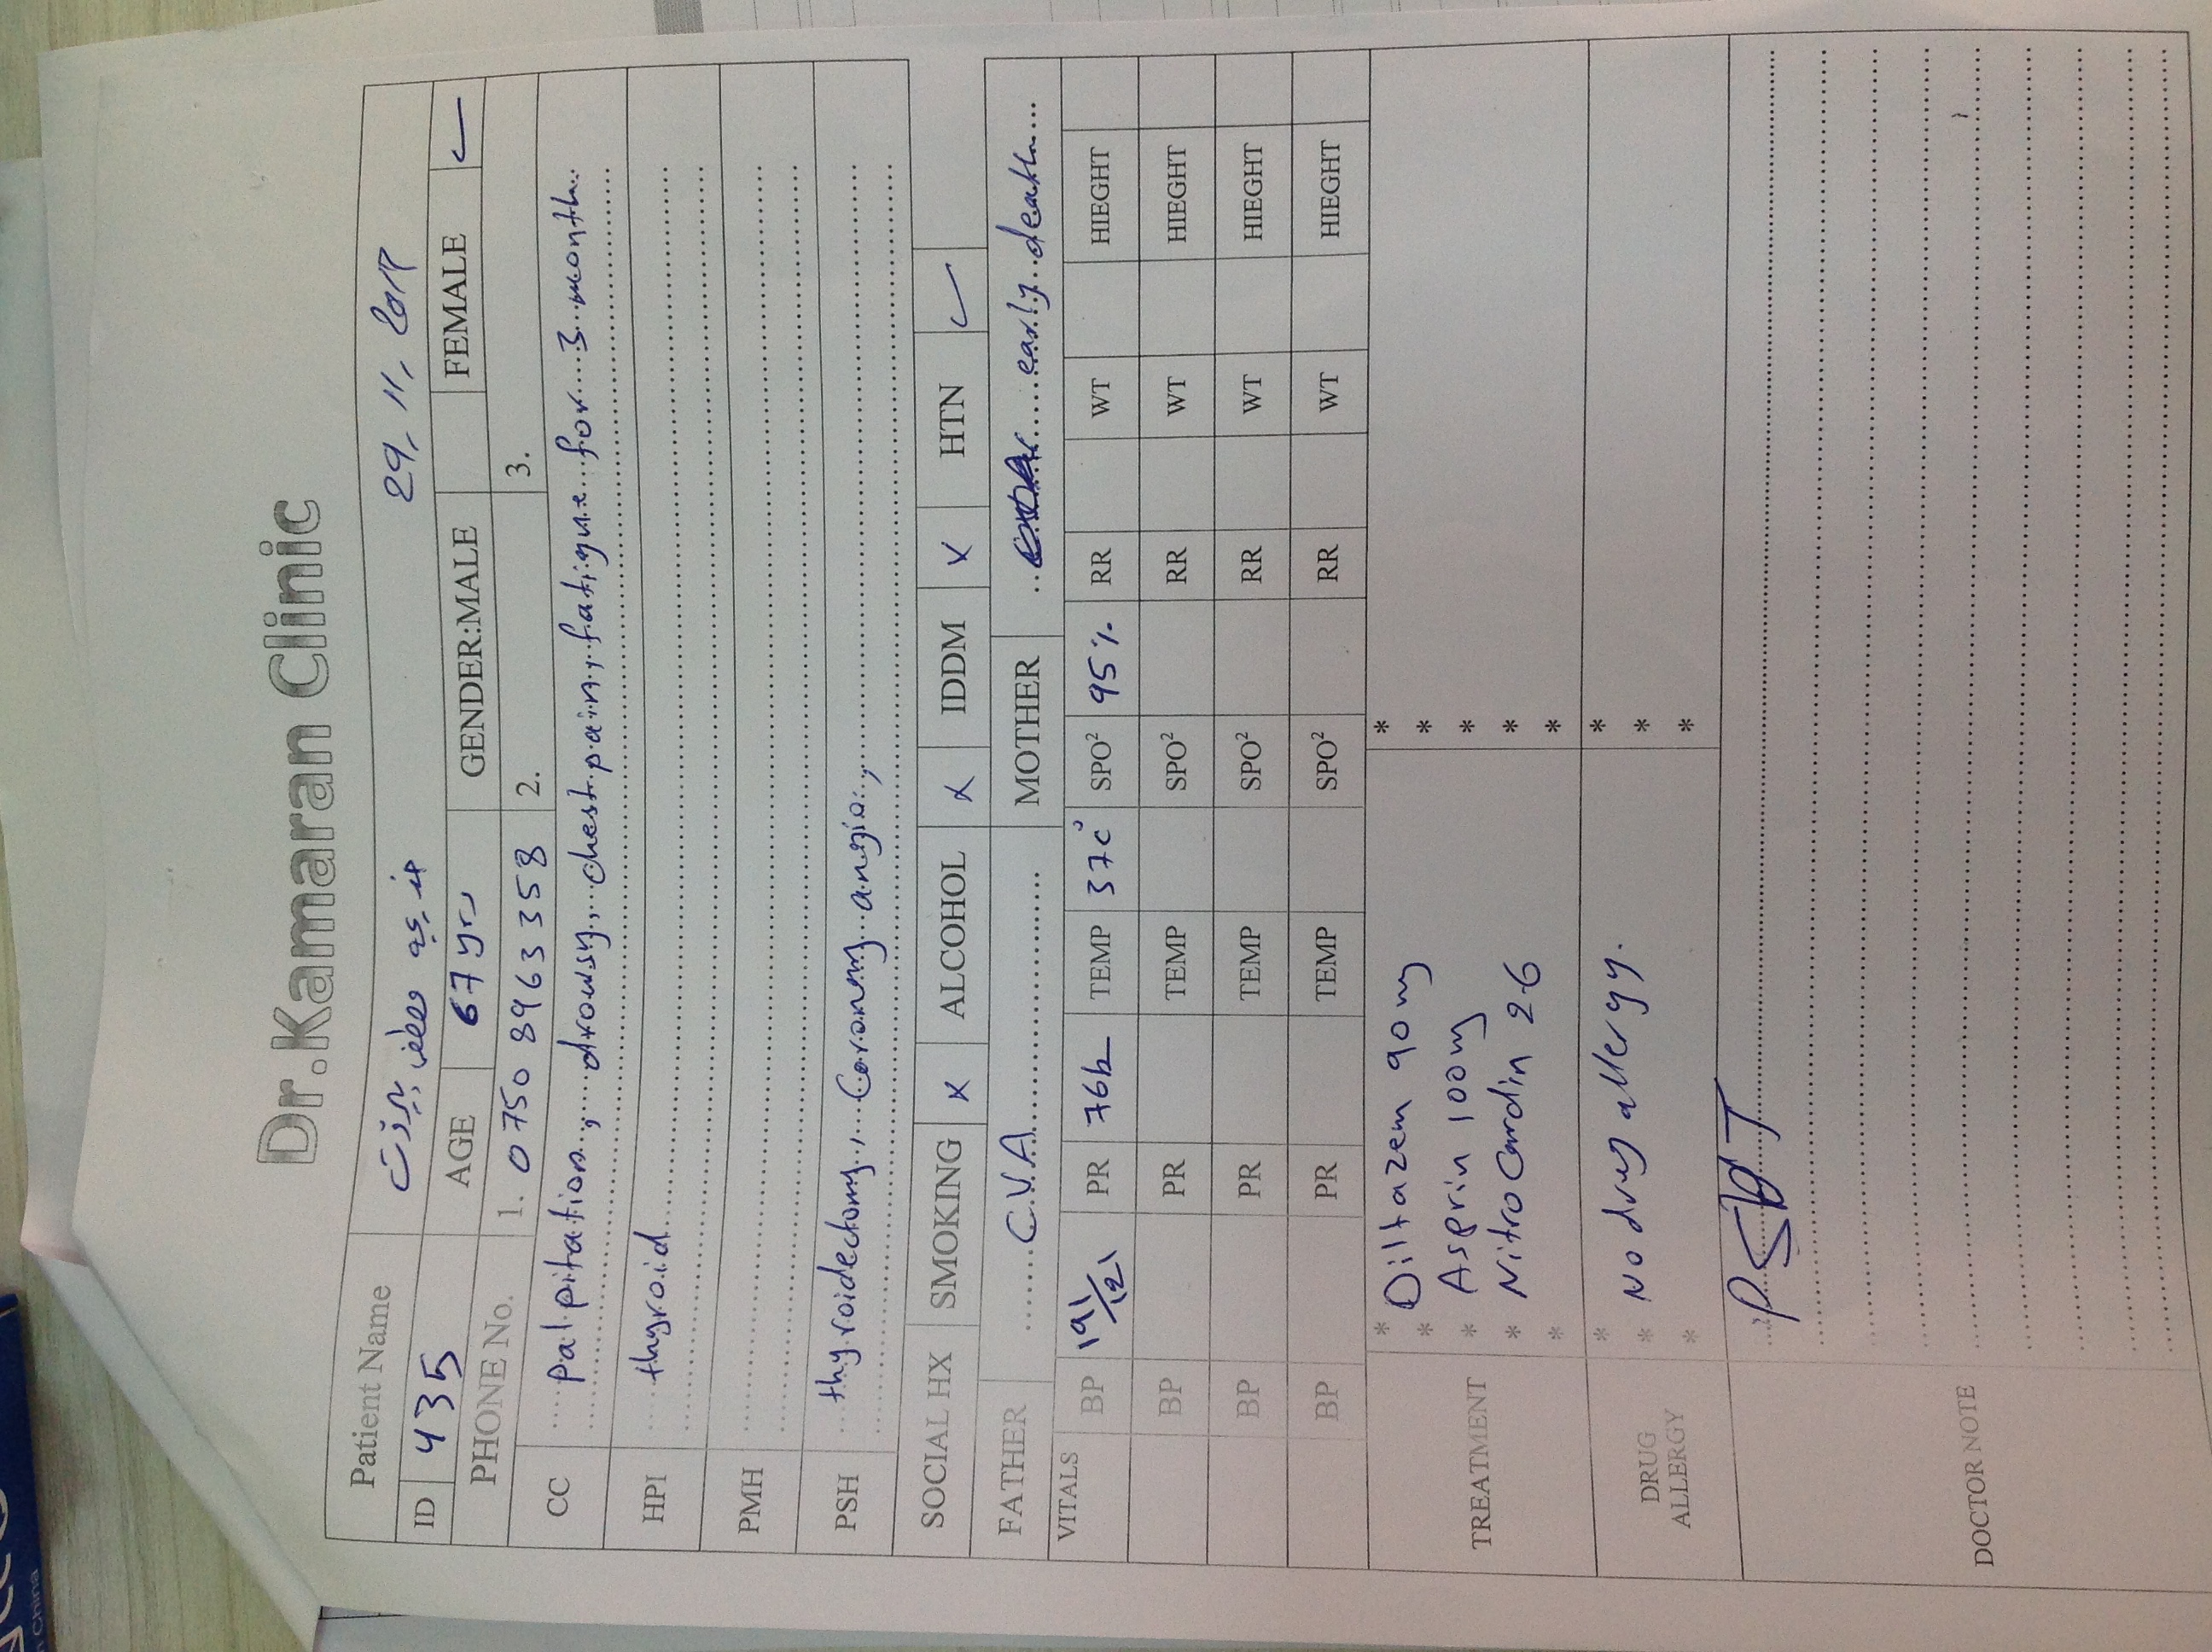 Dr.Kamaran Clinic
Patient Name 29, 11, 2017
ID 435 AGE 67 yrs GENDER:MALE FEMALE ✓
PHONE No. 1. 0750 8963358 2. 3.
CC palpitation, drowsy, chest pain, fatigue for 3 month
HPI thyroid
PMH
PSH thyroidectomy, Coronary angio,
SOCIAL HX SMOKING x ALCOHOL x IDDM x HTN ✓
FATHER C.V.A MOTHER early death
VITALS BP PR 76b TEMP 37c° SPO² 95% RR WT HIEGHT
BP PR TEMP SPO² RR WT HIEGHT
BP PR TEMP SPO² RR WT HIEGHT
BP PR TEMP SPO² RR WT HIEGHT
TREATMENT
* Diltazem 90mg *
* Asprin 100mg *
* Nitrocardin 2.6 *
* *
* *
DRUG ALLERGY
* *
* No drug allergy. *
* *
DOCTOR NOTE